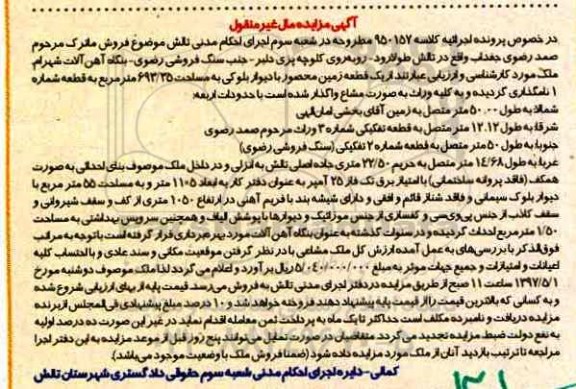 آگهی مزایده مال غیر منقول
در خصوص پرونده اجرائیه کلاسه ۹۵۰۱۵۷ مطروحه در شعبه سوم اجرای احکام مدنی تالش موضوع فروش ماترک مرحوم
صمد رضوی جغداب واقع در تالش طولارود - روبه‌روی کلوچه پزی دلبر - جنب سنگ فروشی رضوی - بنگاه آهن آلات شهرام،
ملک مورد کارشناسی و ارزیابی عبارتند از یک قطعه زمین محصور با دیوار بلوکی به مساحت ۶۹۳/۳۵ متر مربع به قطعه شماره
۱ نامگذاری گردیده و به کلیه وراث به صورت مشاع واگذار شده است با حدودات اربعه:
شمالا: به طول ۵۰.۰۰ متر متصل به زمین آقای بخشی امان‌الهی
شرقا: به طول ۱۲.۱۲ متر متصل به قطعه تفکیکی شماره ۳ وراث مرحوم صمد رضوی
جنوبا: به طول ۵۰ متر متصل به قطعه شماره ۲ تفکیکی (سنگ فروشی رضوی)
غربا: به طول ۱۴/۶۸ متر متصل به حریم ۲۲/۵۰ متری جاده اصلی تالش به انزلی و در داخل ملک موصوف بنای احداثی به صورت
همکف (فاقد پروانه ساختمانی) با امتیاز برق تک فاز ۲۵ آمپر به عنوان دفتر کار به ابعاد ۵*۱۱ متر و به مساحت ۵۵ متر مربع با
دیوار بلوک سیمانی و فاقد شناژ قائم و افقی و دارای شیشه بند با فریم آهنی در ارتفاع ۱۰۵۰ متری از کف و سقف شیروانی و
سقف کاذب از جنس پی‌وی‌سی و کفسازی از جنس موزائیک و دیوارها با پوشش الیاف و همچنین سرویس بهداشتی به مساحت
۱/۵۰ متر مربع احداث گردیده و در سنوات گذشته به عنوان بنگاه آهن آلات مورد بهره‌برداری قرار گرفته است با توجه به مراتب
فوق‌الذکر با بررسی‌های به عمل آمده ارزش کل ملک مشاعی با در نظر گرفتن موقعیت مکانی و سند عادی و با احتساب کلیه
اعیانات و امتیازات و جمیع جهات موثر به مبلغ ۵/۰۴۰/۰۰۰/۰۰۰ ریال برآورد و اعلام می گردد لذا ملک موصوف دوشنبه مورخ
۱۳۹۷/۵/۱ ساعت ۱۱ صبح از طریق مزایده در دفتر اجرای مدنی تالش به فروش می‌رسد. قیمت پایه از بهای ارزیابی شروع شده
و به کسانی که بالاترین قیمت را از قیمت پایه پیشنهاد دهند فروخته خواهد شد و ۱۰ درصد مبلغ پیشنهادی فی‌المجلس از برنده
مزایده دریافت و نامبرده مکلف است حداکثر تا یک ماه به پرداخت ثمن معامله اقدام نماید در غیر این صورت ده درصد اولیه
به نفع دولت ضبط، مزایده تجدید می گردد. متقاضیان در صورت تمایل می‌توانند پنج روز قبل از موعد مزایده به این دفتر اجرا
مراجعه تا ترتیب بازدید آنان از ملک مورد مزایده داده شود (ضمنا فروش ملک با وضعیت موجود می‌باشد).
کمالی - دایره اجرای احکام مدنی شعبه سوم حقوقی دادگستری شهرستان تالش